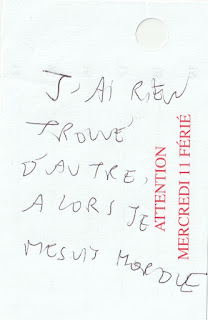 J'AI RIEN
TROUVÉ
D'AUTRE,
ALORS JE
ME SUIS MORDUE
ATTENTION
MERCREDI 11 FÉRIÉ